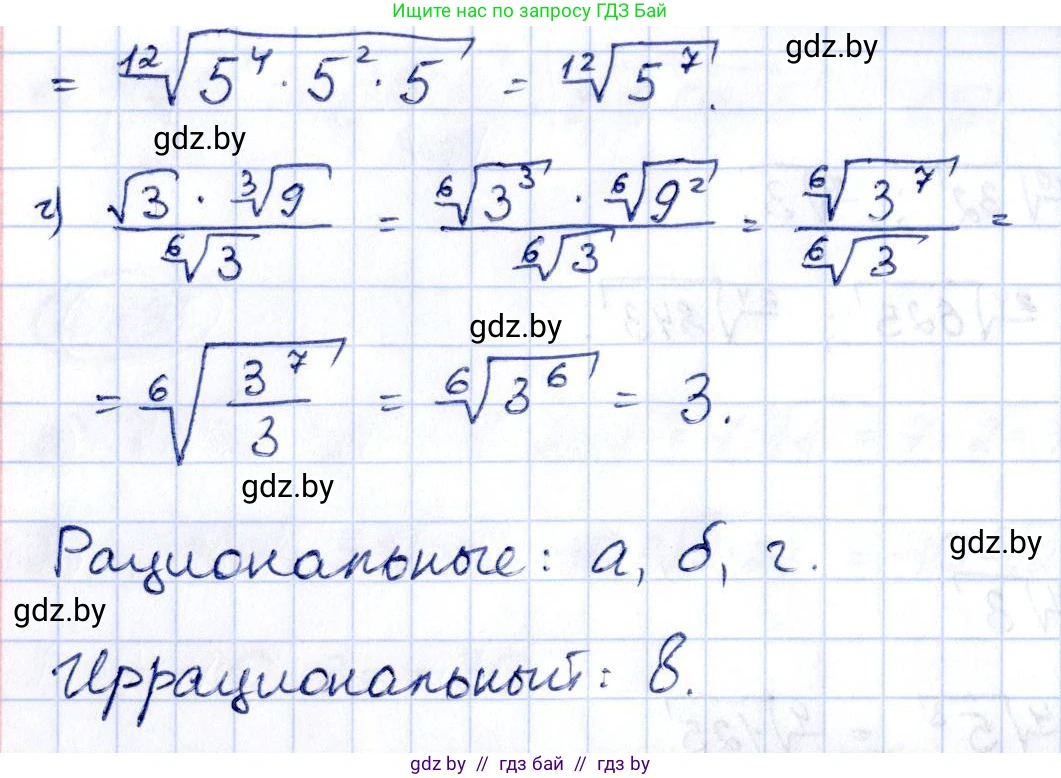 Ищите нас по запросу ГДЗ Бай
= ¹²√(5⁴ · 5² · 5) = ¹²√(5⁷).
gdz.by
gdz.by
г) (√3 · ³√9)/(⁶√3) = (⁶√(3³) · ⁶√(9²))/(⁶√3) = (⁶√(3⁷))/(⁶√3) =
gdz.by
= ⁶√(3⁷/3) = ⁶√(3⁶) = 3.
gdz.by
Рациональные: а, б, г.
gdz.by
gdz.by
Иррациональный: в.
gdz.by // гдз бай // гдз by